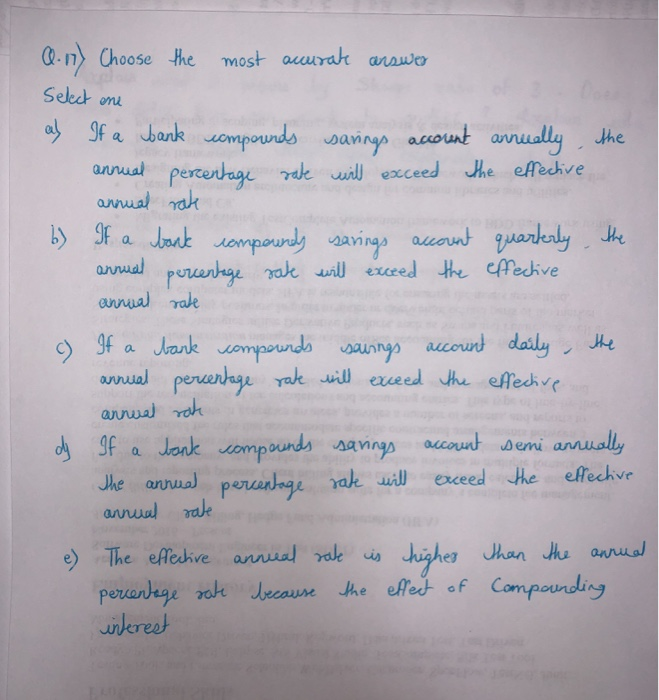 Q.17) Choose the most accurate answer
Select one
a) If a bank compounds savings account annually, the
annual percentage rate will exceed the effective
annual rate
b) If a bank compounds savings account quarterly, the
annual percentage rate will exceed the effective
annual rate
c) If a bank compounds savings account daily, the
annual percentage rate will exceed the effective
annual rate
d) If a bank compounds savings account semi annually
the annual percentage rate will exceed the effective
annual rate
e) The effective annual rate is higher than the annual
percentage rate because the effect of Compounding
interest